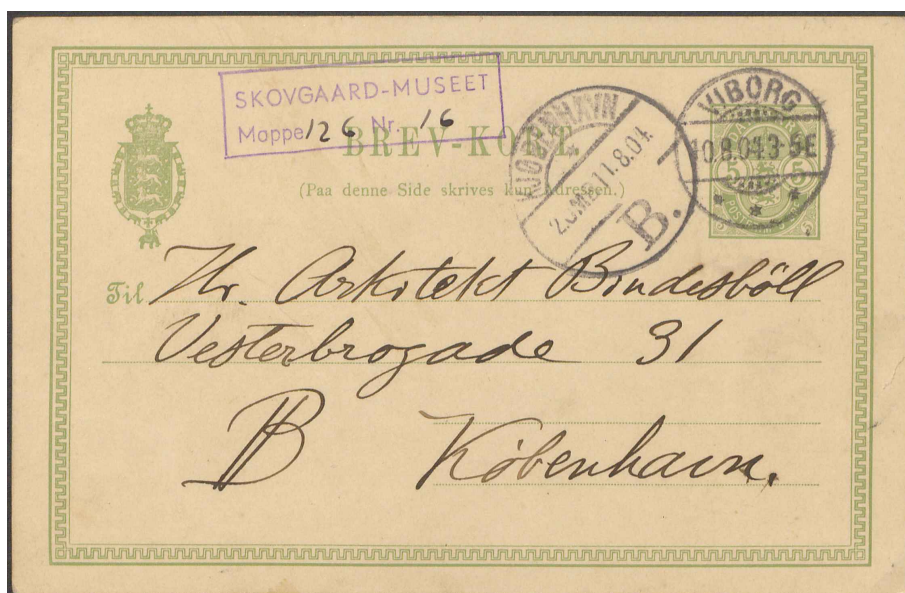 SKOVGAARD-MUSEET
Moppe 126 Nr. 16
BREV-KORT.
(Paa denne Side skrives kun Adressen.)
KJØBENHAVN
2.OMB. 11.8.04.
B.
VIBORG
10.8.04. 3-5E
5 5
Til Hr. Arkitekt Bindesböll
Vesterbrogade 31
B København.